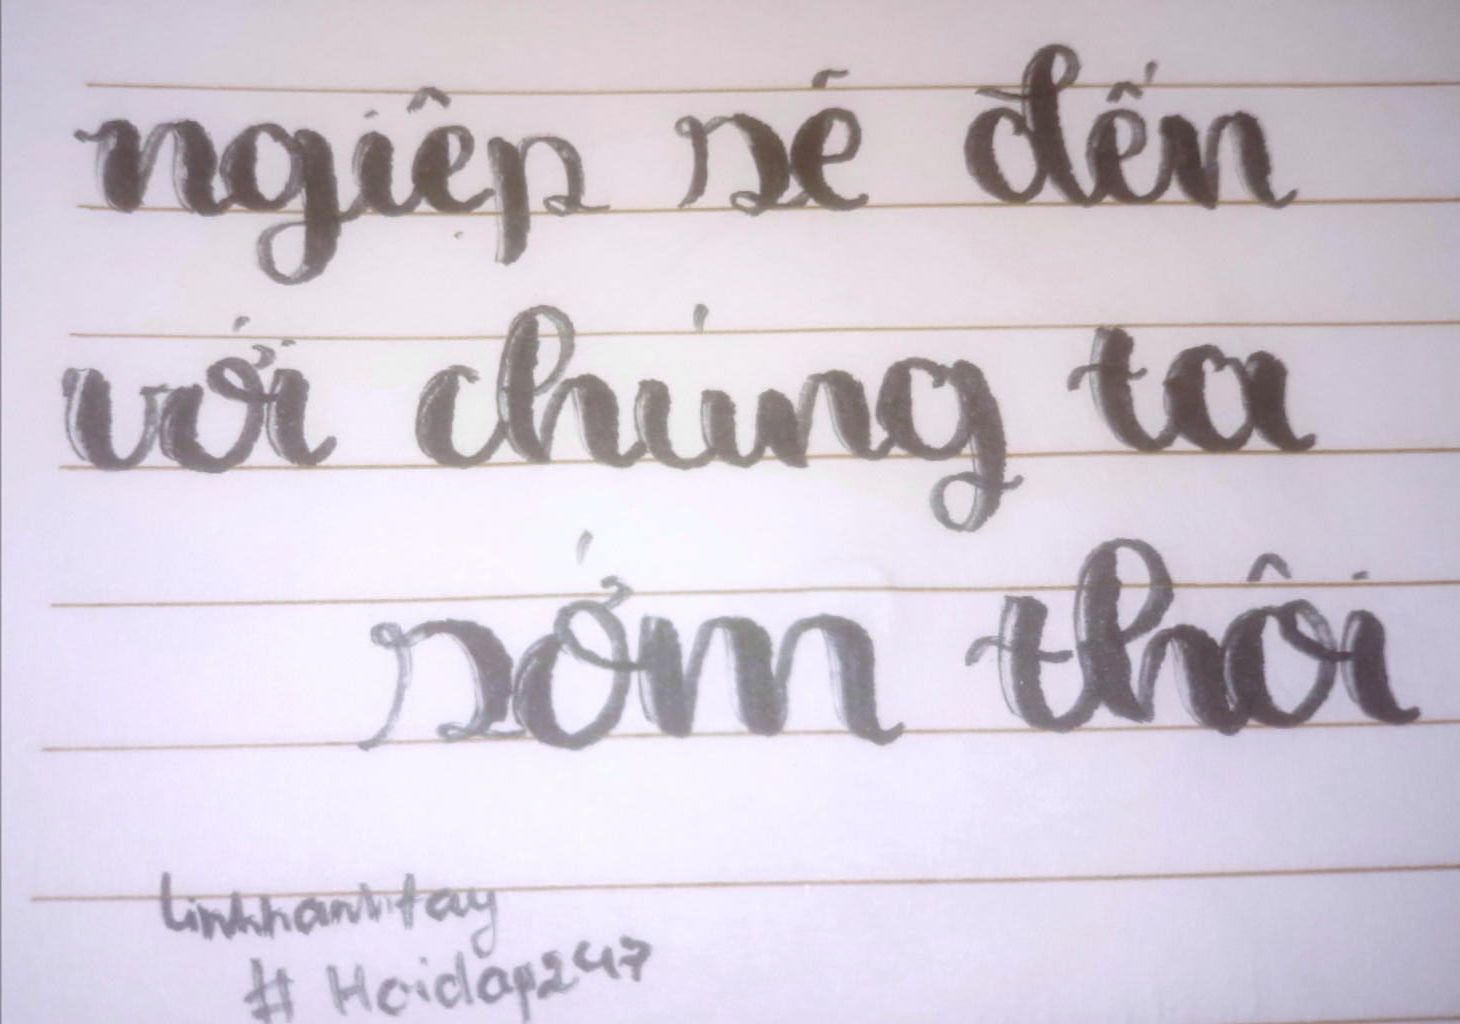 ngiệp sẽ đến
với chúng ta
sớm thôi
linhhanhtay
# Hoidap247